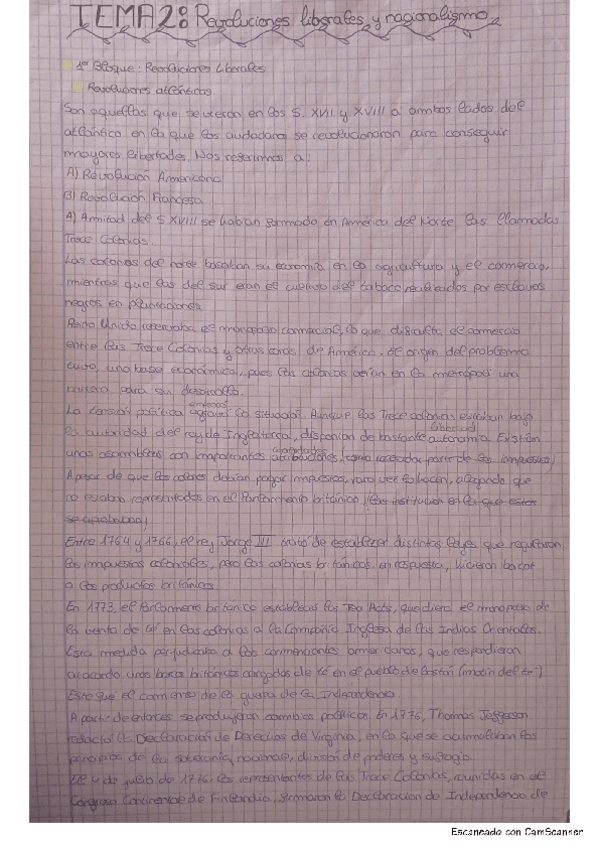 TEMA 2: Revoluciones liberales y nacionalismo
1er Bloque: Revoluciones Liberales
Revoluciones atlánticas
Son aquellas que se vieron en los S. XVII y XVIII a ambos lados del
atlántico en la que los ciudadanos se revolucionaron para conseguir
mayores libertades. Nos referimos a:
A) Revolución Americana
B) Revolución Francesa
A) A mitad del S XVIII se habían formado en América del Norte las llamadas
Trece Colonias.
Las colonias del norte basaban su economía en la agricultura y el comercio,
mientras que las del sur eran el cultivo del tabaco realizados por esclavos
negros en plantaciones
Reino Unido reservaba el monopolio comercial, lo que dificulta el comercio
entre las Trece Colonias y otras zonas de América. El origen del problema
tuvo, una base económica, pues las colonias veían en la metrópoli una
barrera para su desarrollo.
La tensión política la situación. Aunque las Trece colonias estaban bajo
la autoridad del rey de Inglaterra, disponían de bastante autonomía libertad. Existían
unas asambleas con importantes atribuciones, como recaudar parte de los impuestos,
A pesar de que los colonos debían pagar impuestos, rara vez lo hacían, alegando que
no estaban representados en el Parlamento británico, las institución en la que estos
se aprobaban,
Entre 1764 y 1766, el rey Jorge III trató de establecer distintas leyes que regularan
los impuestos coloniales, pero las colonias británicas en respuesta, hicieron boicot
a los productos británicos.
En 1773, el Parlamento británico establece las Tea Acts, que diera el monopolio de
la venta de té en las colonias a la Compañía Inglesa de las Indias Orientales.
Esta medida perjudicaba a los comerciantes americanos, que respondieron
atacando unos barcos británicos cargados de té en el puerto de Boston (motín del té)
Este fue el comienzo de la guerra de la Independencia.
A partir de entonces se produjeron cambios políticos. En 1776, Thomas Jefferson
redactó la Declaración de Derechos de Virginia, en la que se acumulaban los
principios de la soberanía nacional, división de poderes y sufragio.
El 4 de julio de 1776, los representantes de las Trece Colonias, reunidos en el
Congreso Continental de, firmaron la Declaración de Independencia de
Escaneado con CamScanner